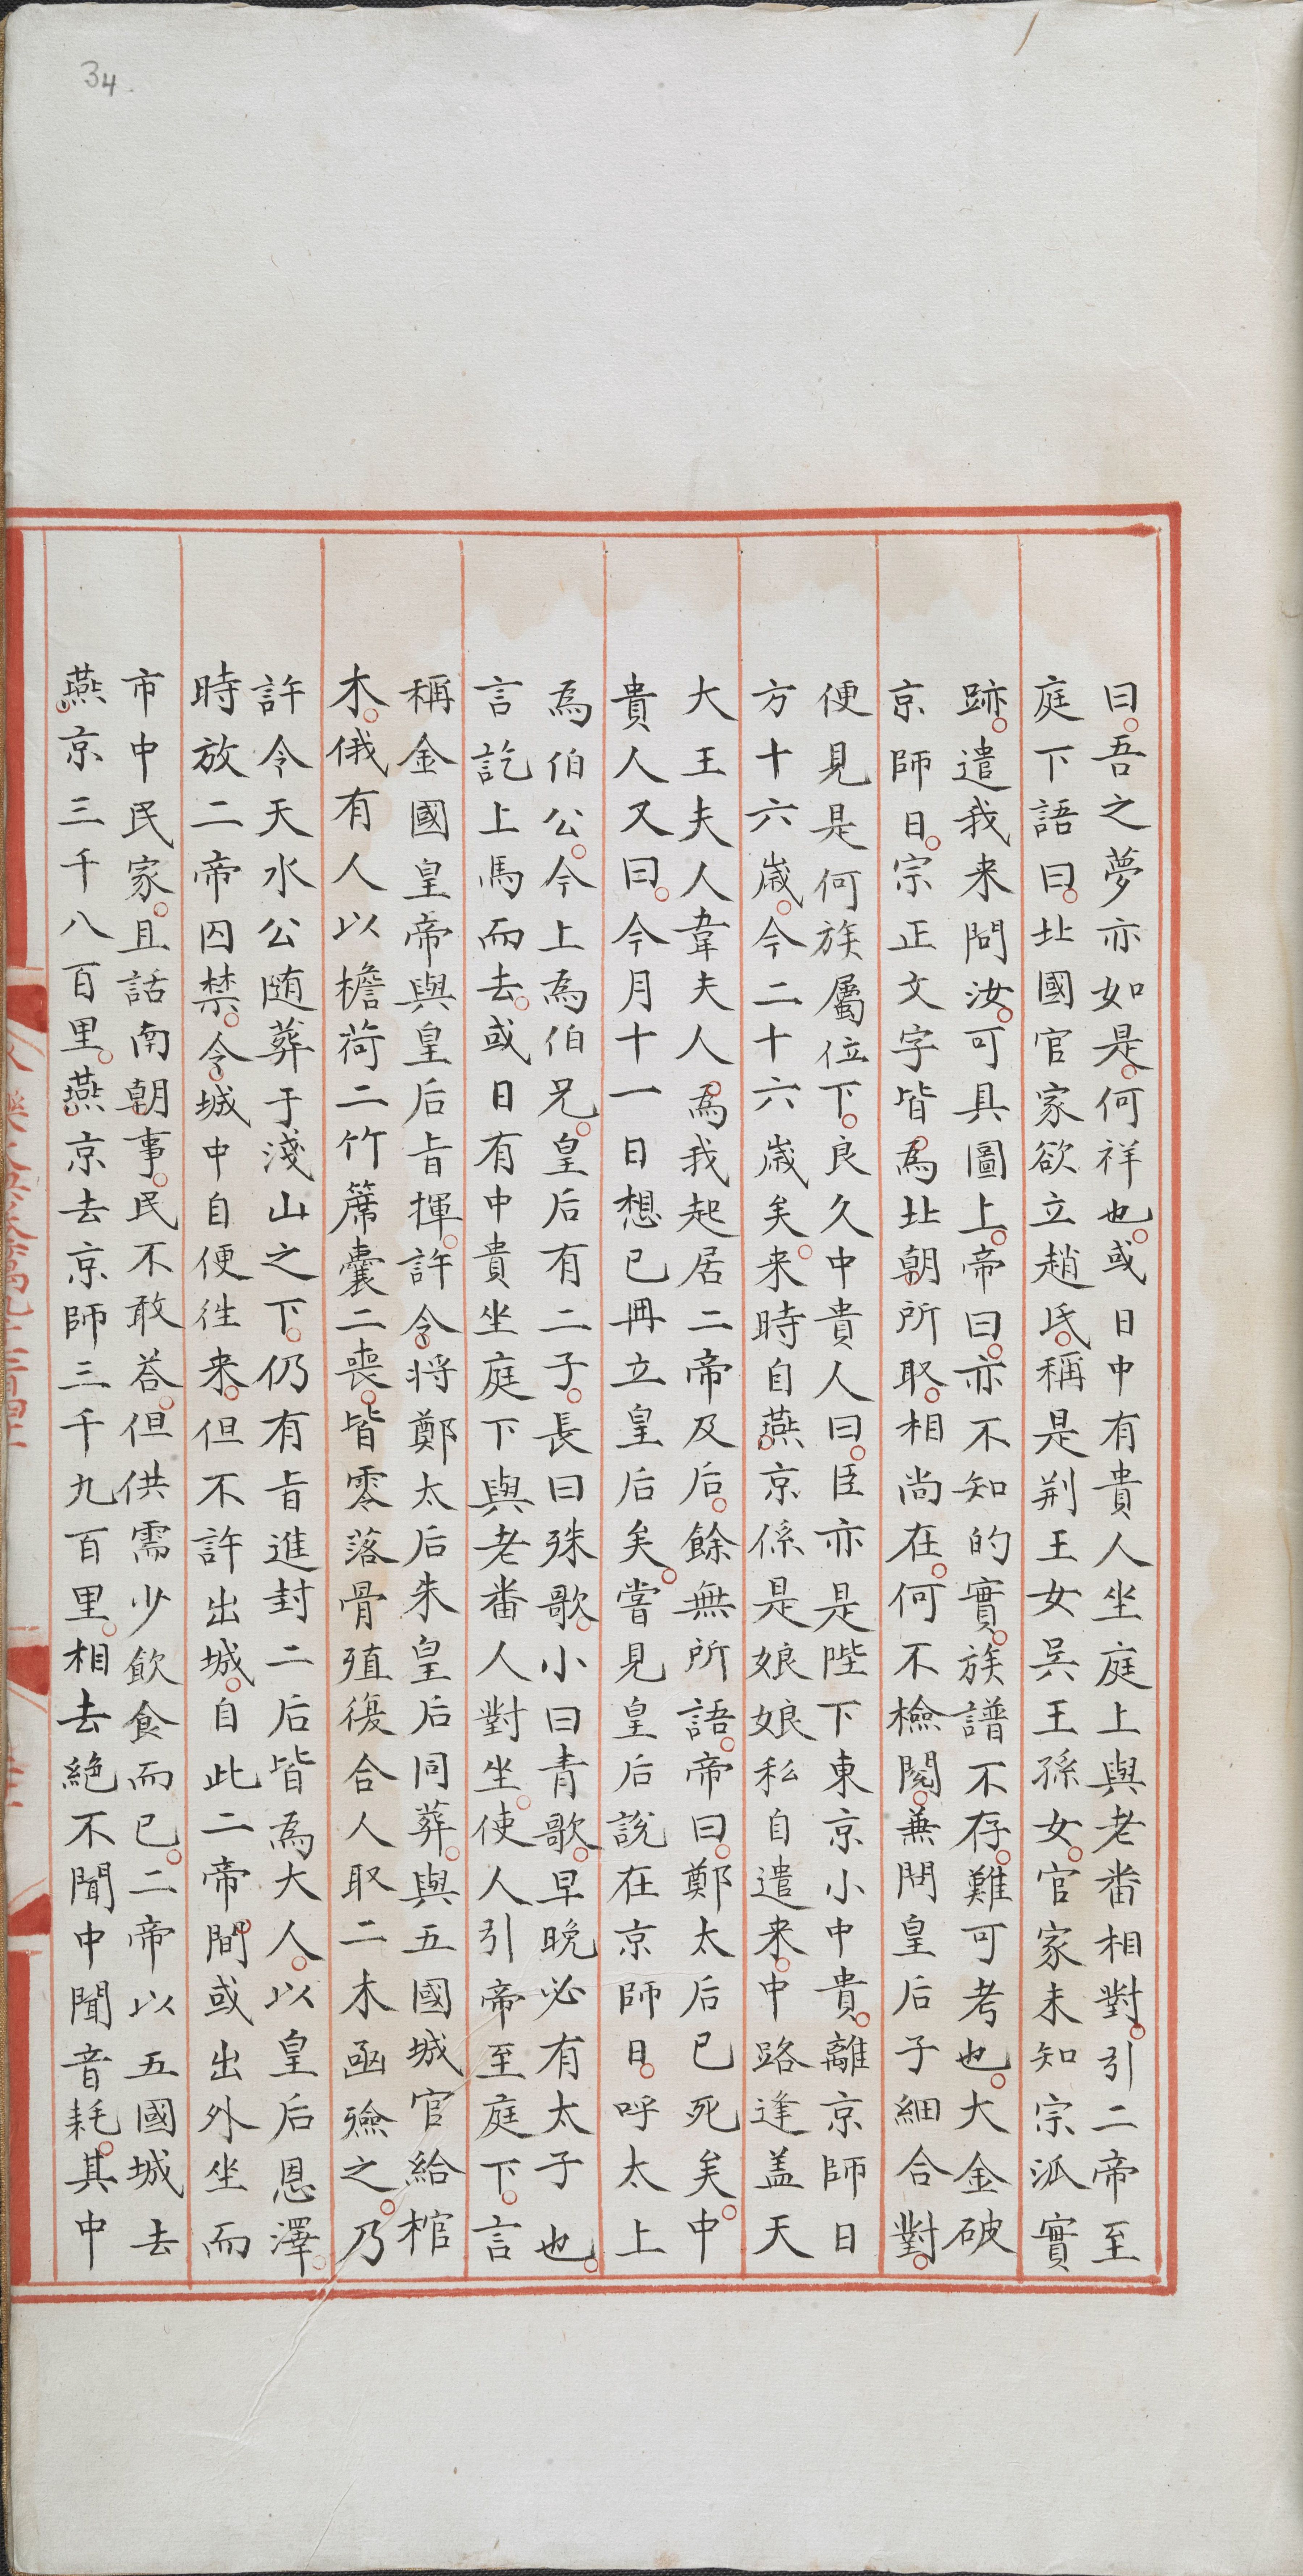 34
曰吾之夢亦如是何祥也或日中有貴人坐庭上與老番相對引二帝至
庭下語曰北國官家欲立趙氏稱是荆王女吳王孫女官家未知宗派實
跡遣我来問汝可具圖上帝曰亦不知的實族譜不存難可考也大金破
京師日宗正文字皆為北朝所取相尚在何不檢閱兼問皇后子細合對
便見是何族屬位下良久中貴人曰臣亦是陛下東京小中貴離京師日
方十六歲今二十六歲矣来時自燕京係是娘娘私自遣来中路逢盖天
大王夫人韋夫人為我起居二帝及后餘無所語帝曰鄭太后已死矣中
貴人又曰今月十一日想已冊立皇后矣嘗見皇后說在京師日呼太上
為伯公今上為伯兄皇后有二子長曰殊歌小曰青歌早晚必有太子也
言訖上馬而去或日有中貴坐庭下與老番人對坐使人引帝至庭下言
稱金國皇帝與皇后旨揮許令將鄭太后朱皇后同葬與五國城官給棺
木俄有人以檐荷二竹蓆囊二喪皆零落骨殖復合人取二木凾殮之乃
許令天水公随葬于淺山之下仍有旨進封二后皆為大人以皇后恩澤
時放二帝囚禁令城中自便徃来但不許出城自此二帝間或出外坐而
市中民家且話南朝事民不敢荅但供需少飲食而已二帝以五國城去
燕京三千八百里燕京去京師三千九百里相去絕不聞中聞音耗其中